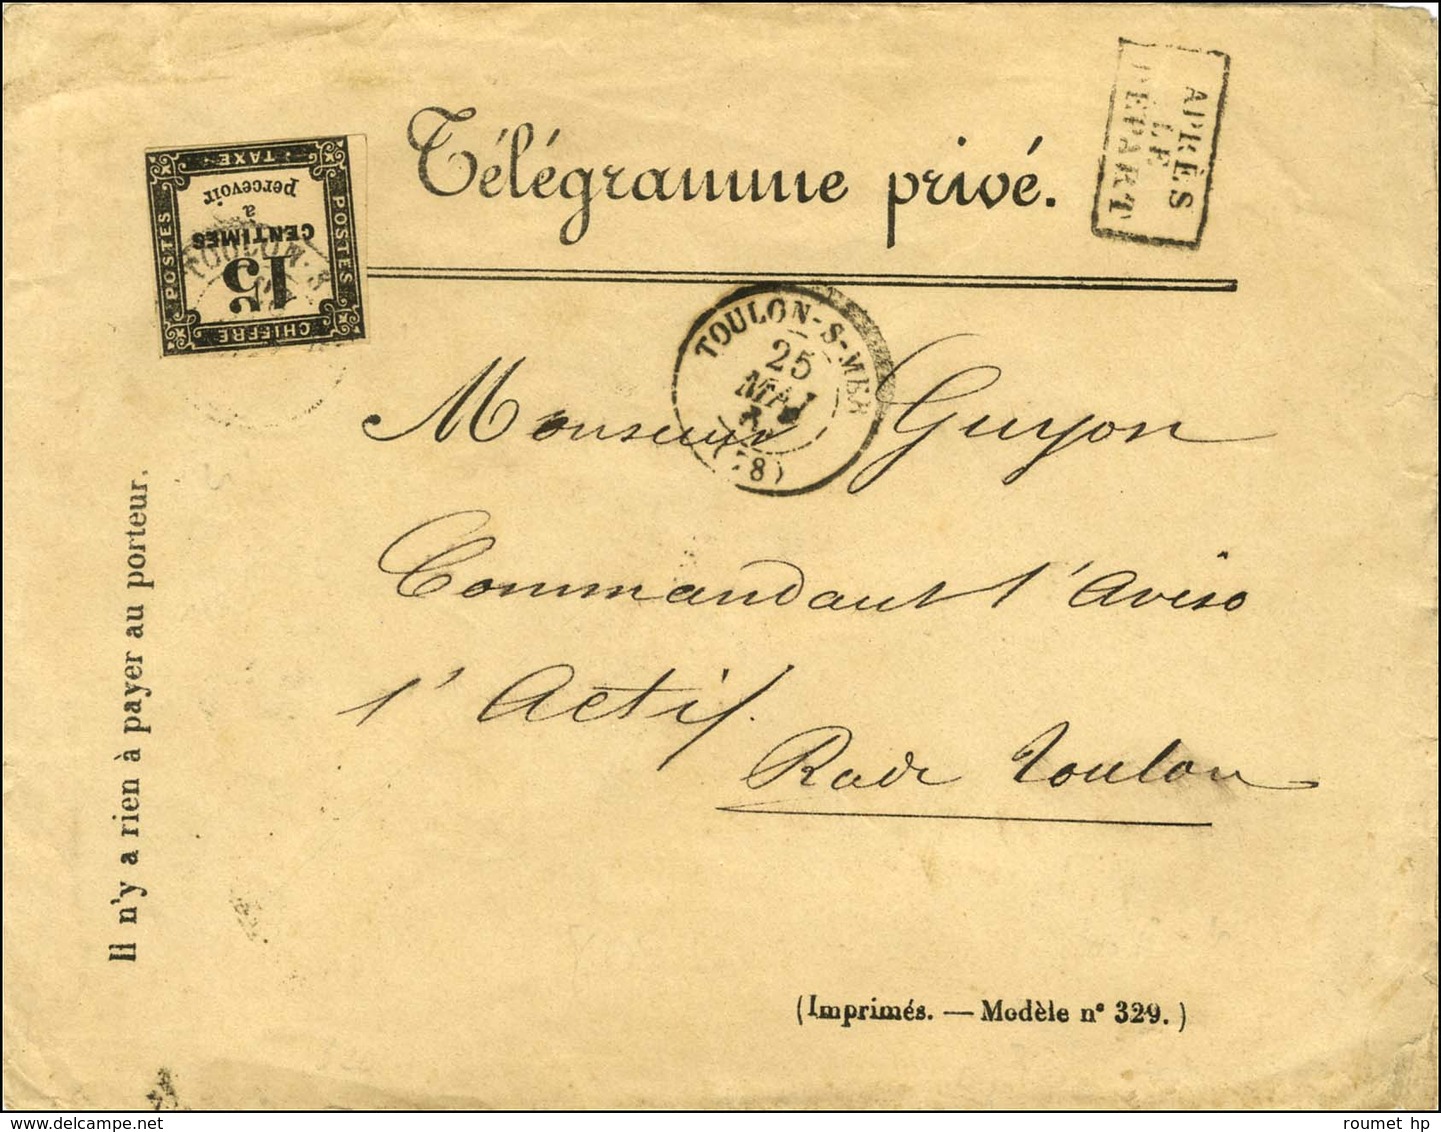 Télégramme privé.
APRÈS
LE
DÉPART
CHIFFRE
POSTES
POSTES
TAXE
15
CENTIMES
a
percevoir
TOULON-S
TOULON-S-MER
25
MAI
(78)
Monsieur Guyon
Commandant l'Aviso
l'Actif.
Rade Toulon
Il n'y a rien à payer au porteur.
(Imprimés. — Modèle n° 329.)
delcampe.net
roumet hp